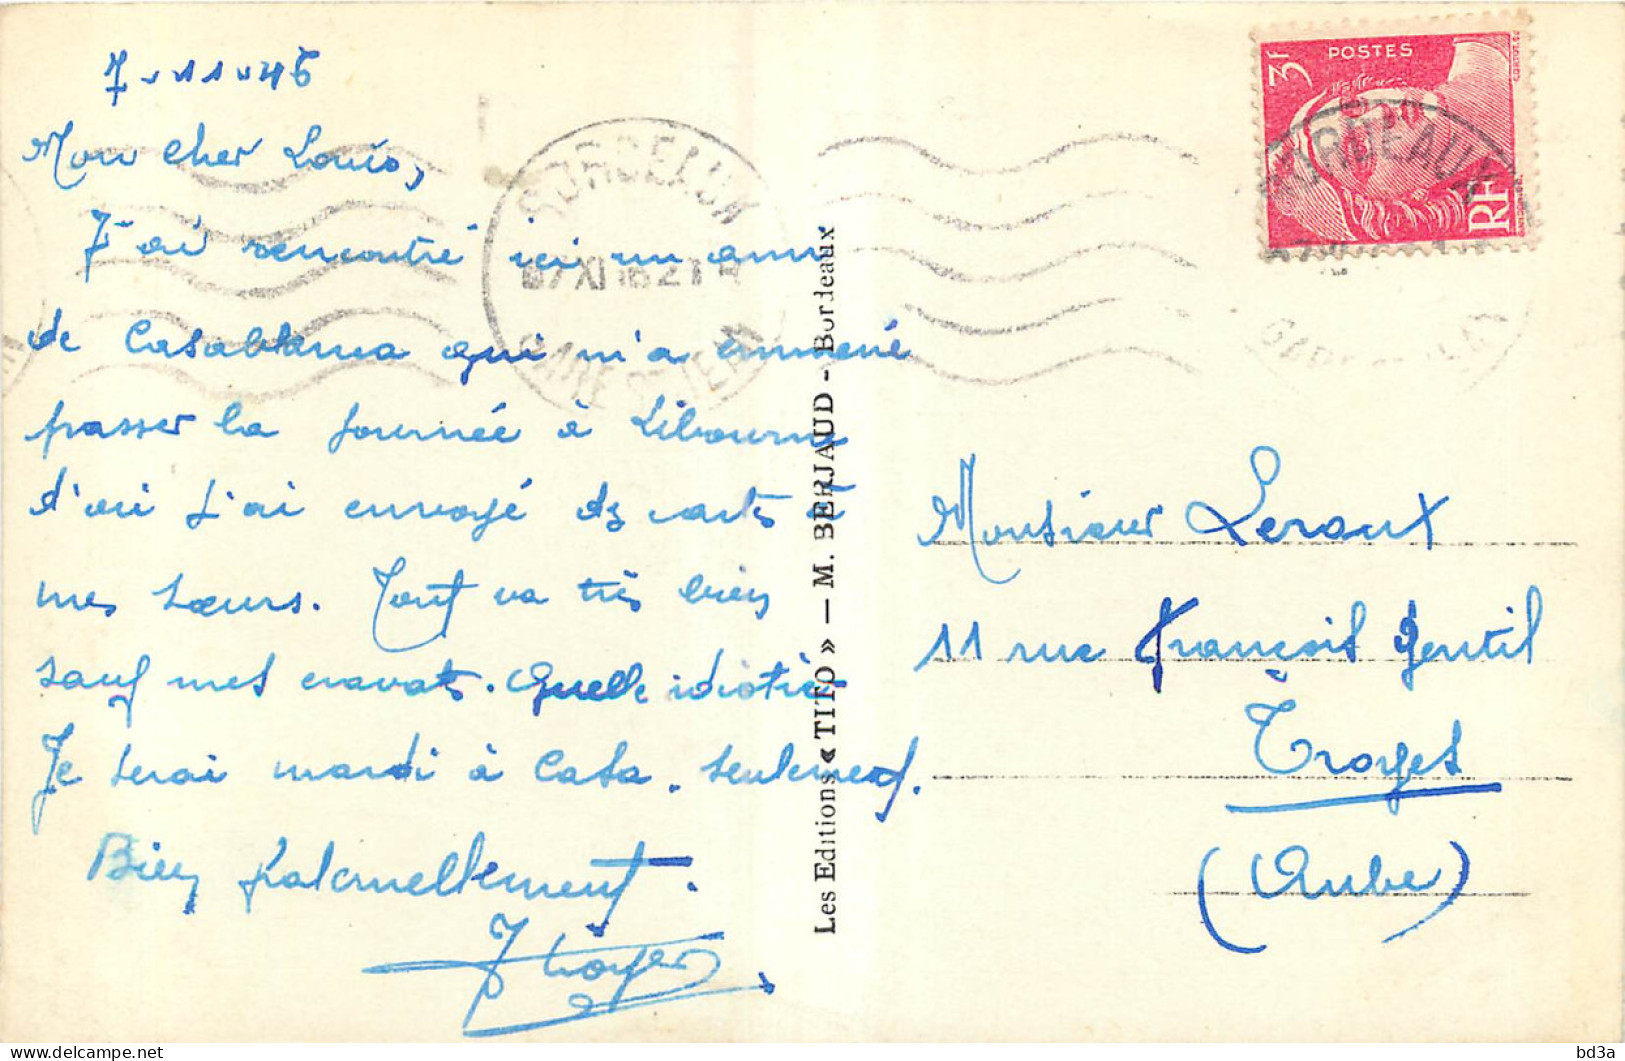 7.11.46
Mon cher Louis,
J'ai rencontré ici un ami
de Casablanca qui m'a emmené
passer la journée à Libourne
d'où j'ai envoyé des cartes à
mes sœurs. Tout va très bien
sauf mes cravates. Quelle idiotie
Je serai mardi à Casa. seulement.
Bien fraternellement.
Les Editions « TITO » — M. BERJAUD - Bordeaux
BORDEAUX
GARE ST JEAN
3F
POSTES
RF
BORDEAUX
Monsieur Leroux
11 rue François Gentil
Troyes
(Aube)
bd3a